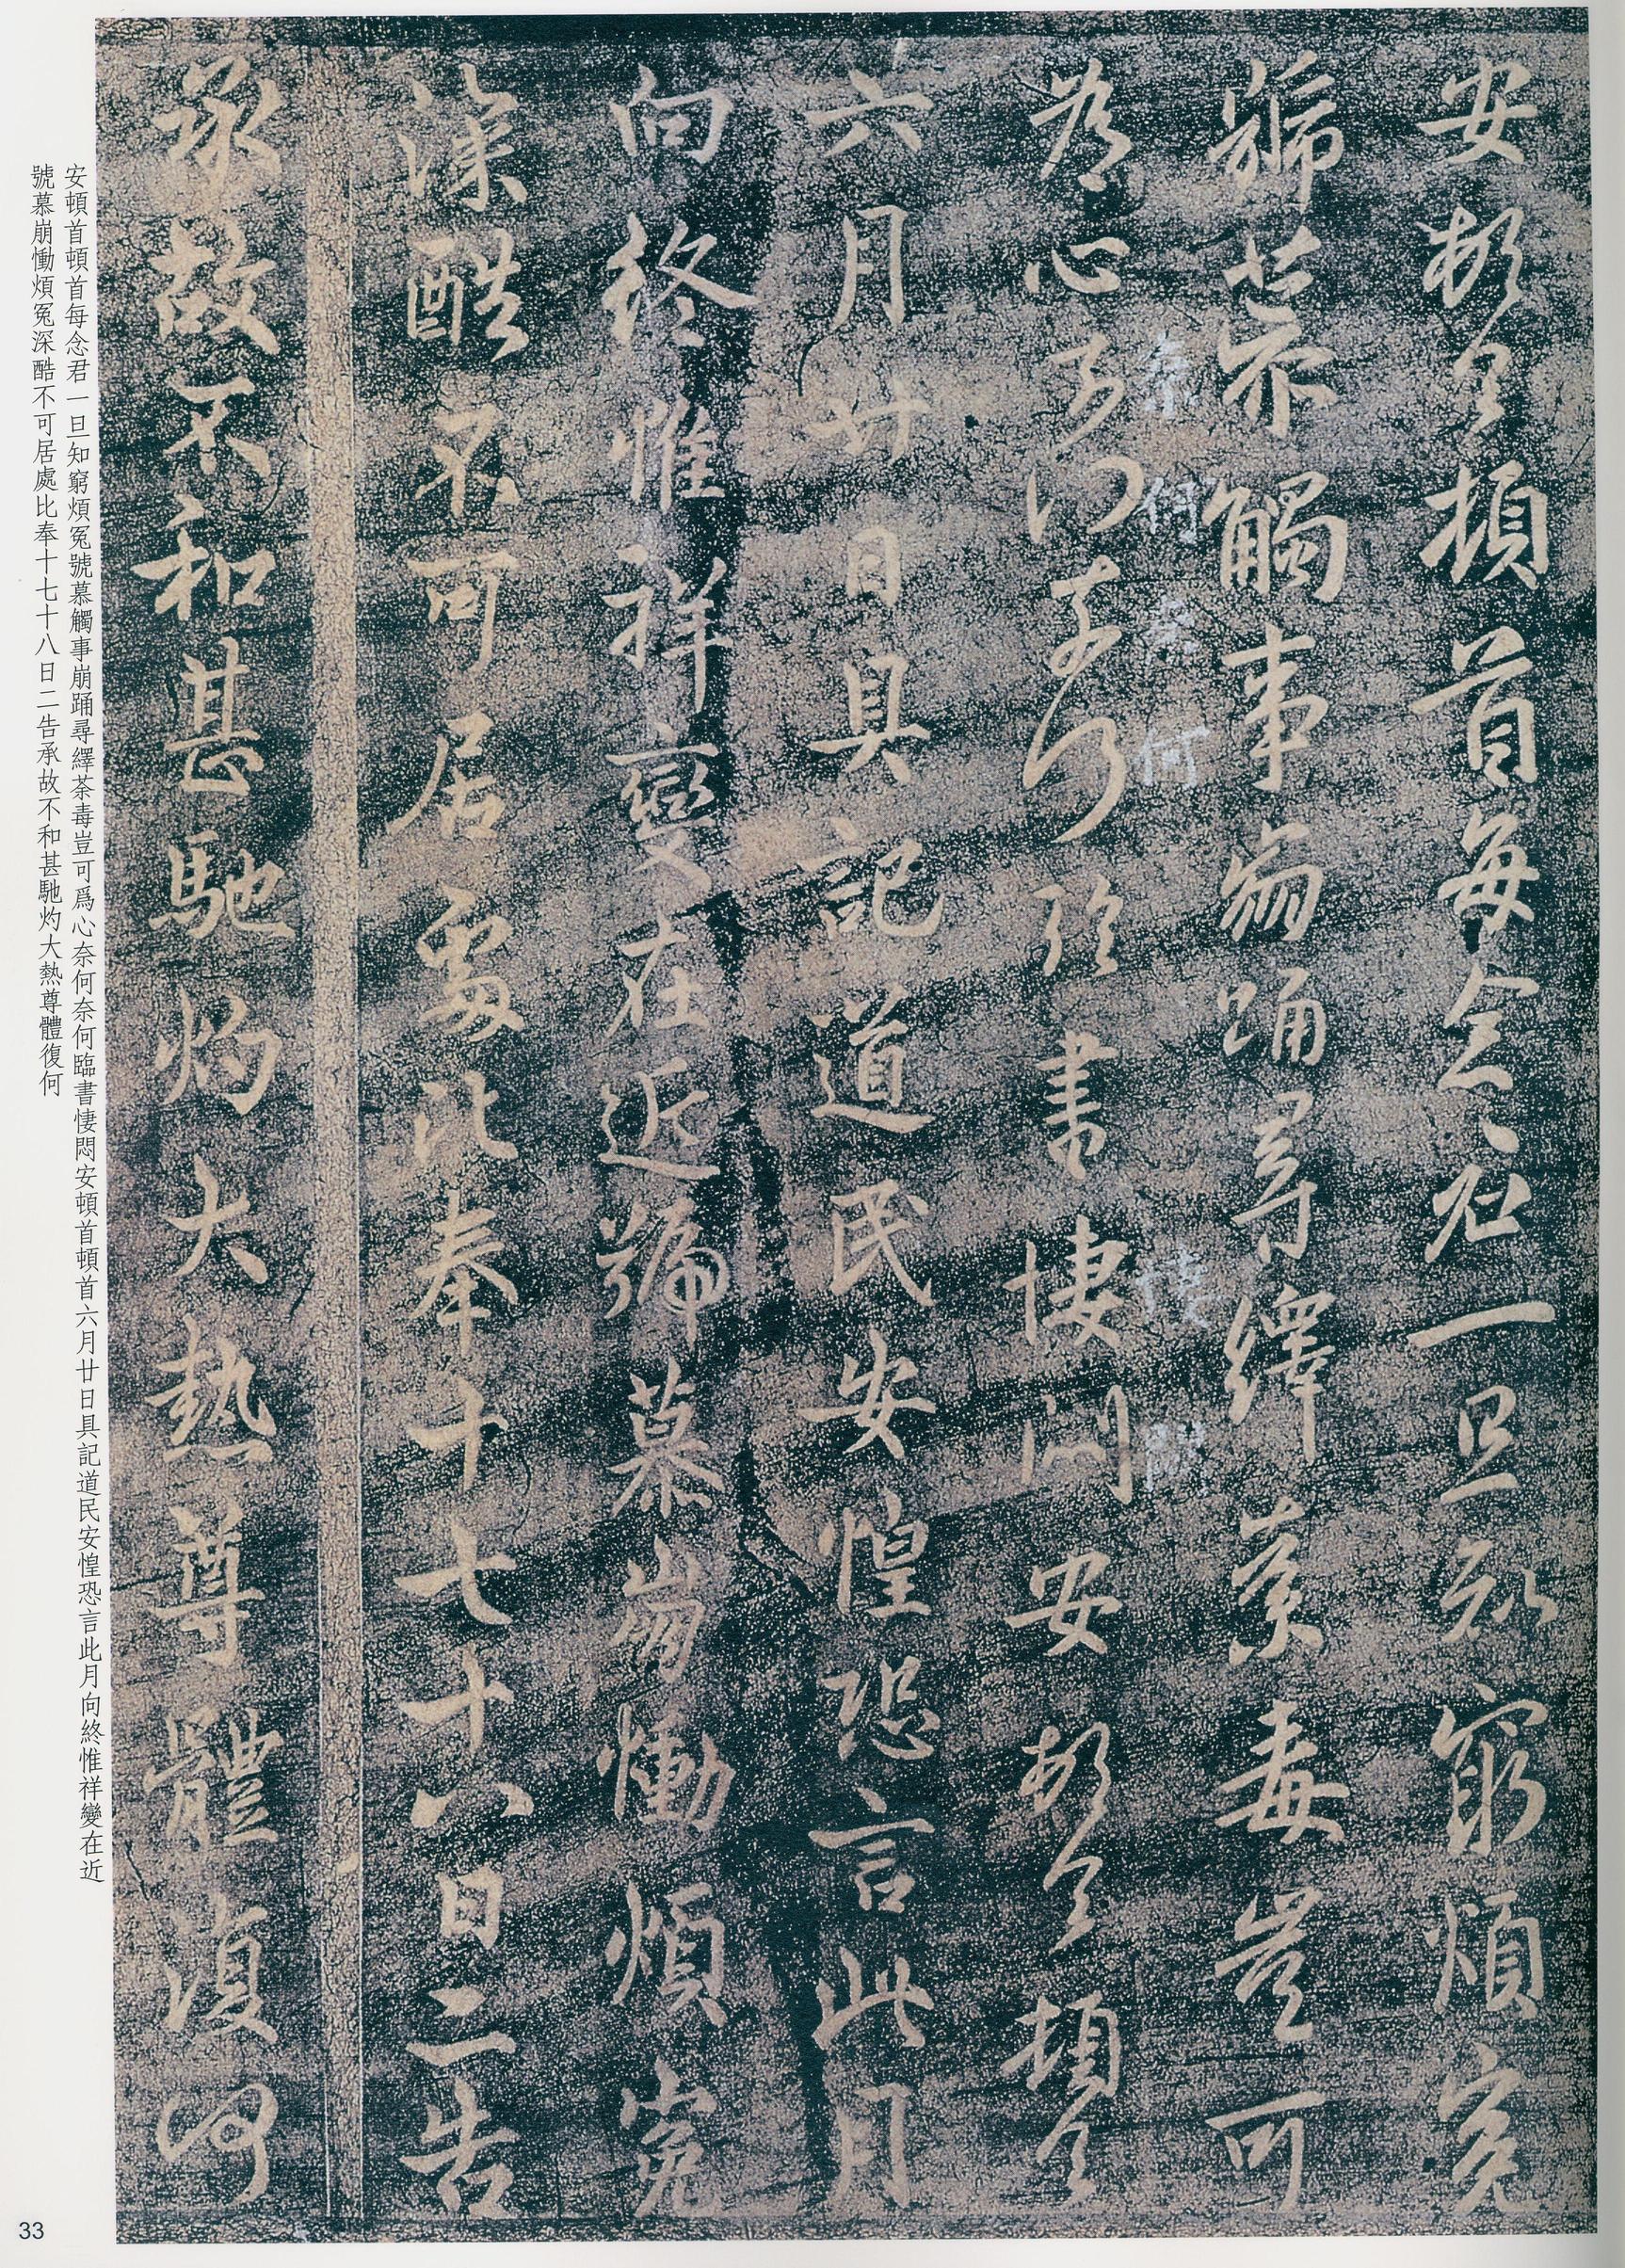 安頓首頓首每念君一旦知窮煩冤
號慕觸事崩踊尋繹荼毒豈可
為心奈何奈何臨書悽悶安頓首頓首
奈何奈何 悽悶
六月廿日具記道民安惶恐言此月
向終惟祥變在近號慕崩慟煩冤
深酷不可居處比奉十七十八日二告
承故不和甚馳灼大熱尊體復何
安頓首頓首每念君一旦知窮煩冤號慕觸事崩踊尋繹荼毒豈可爲心奈何奈何臨書悽悶安頓首頓首六月廿日具記道民安惶恐言此月向終惟祥變在近
號慕崩慟煩冤深酷不可居處比奉十七十八日二告承故不和甚馳灼大熱尊體復何
33